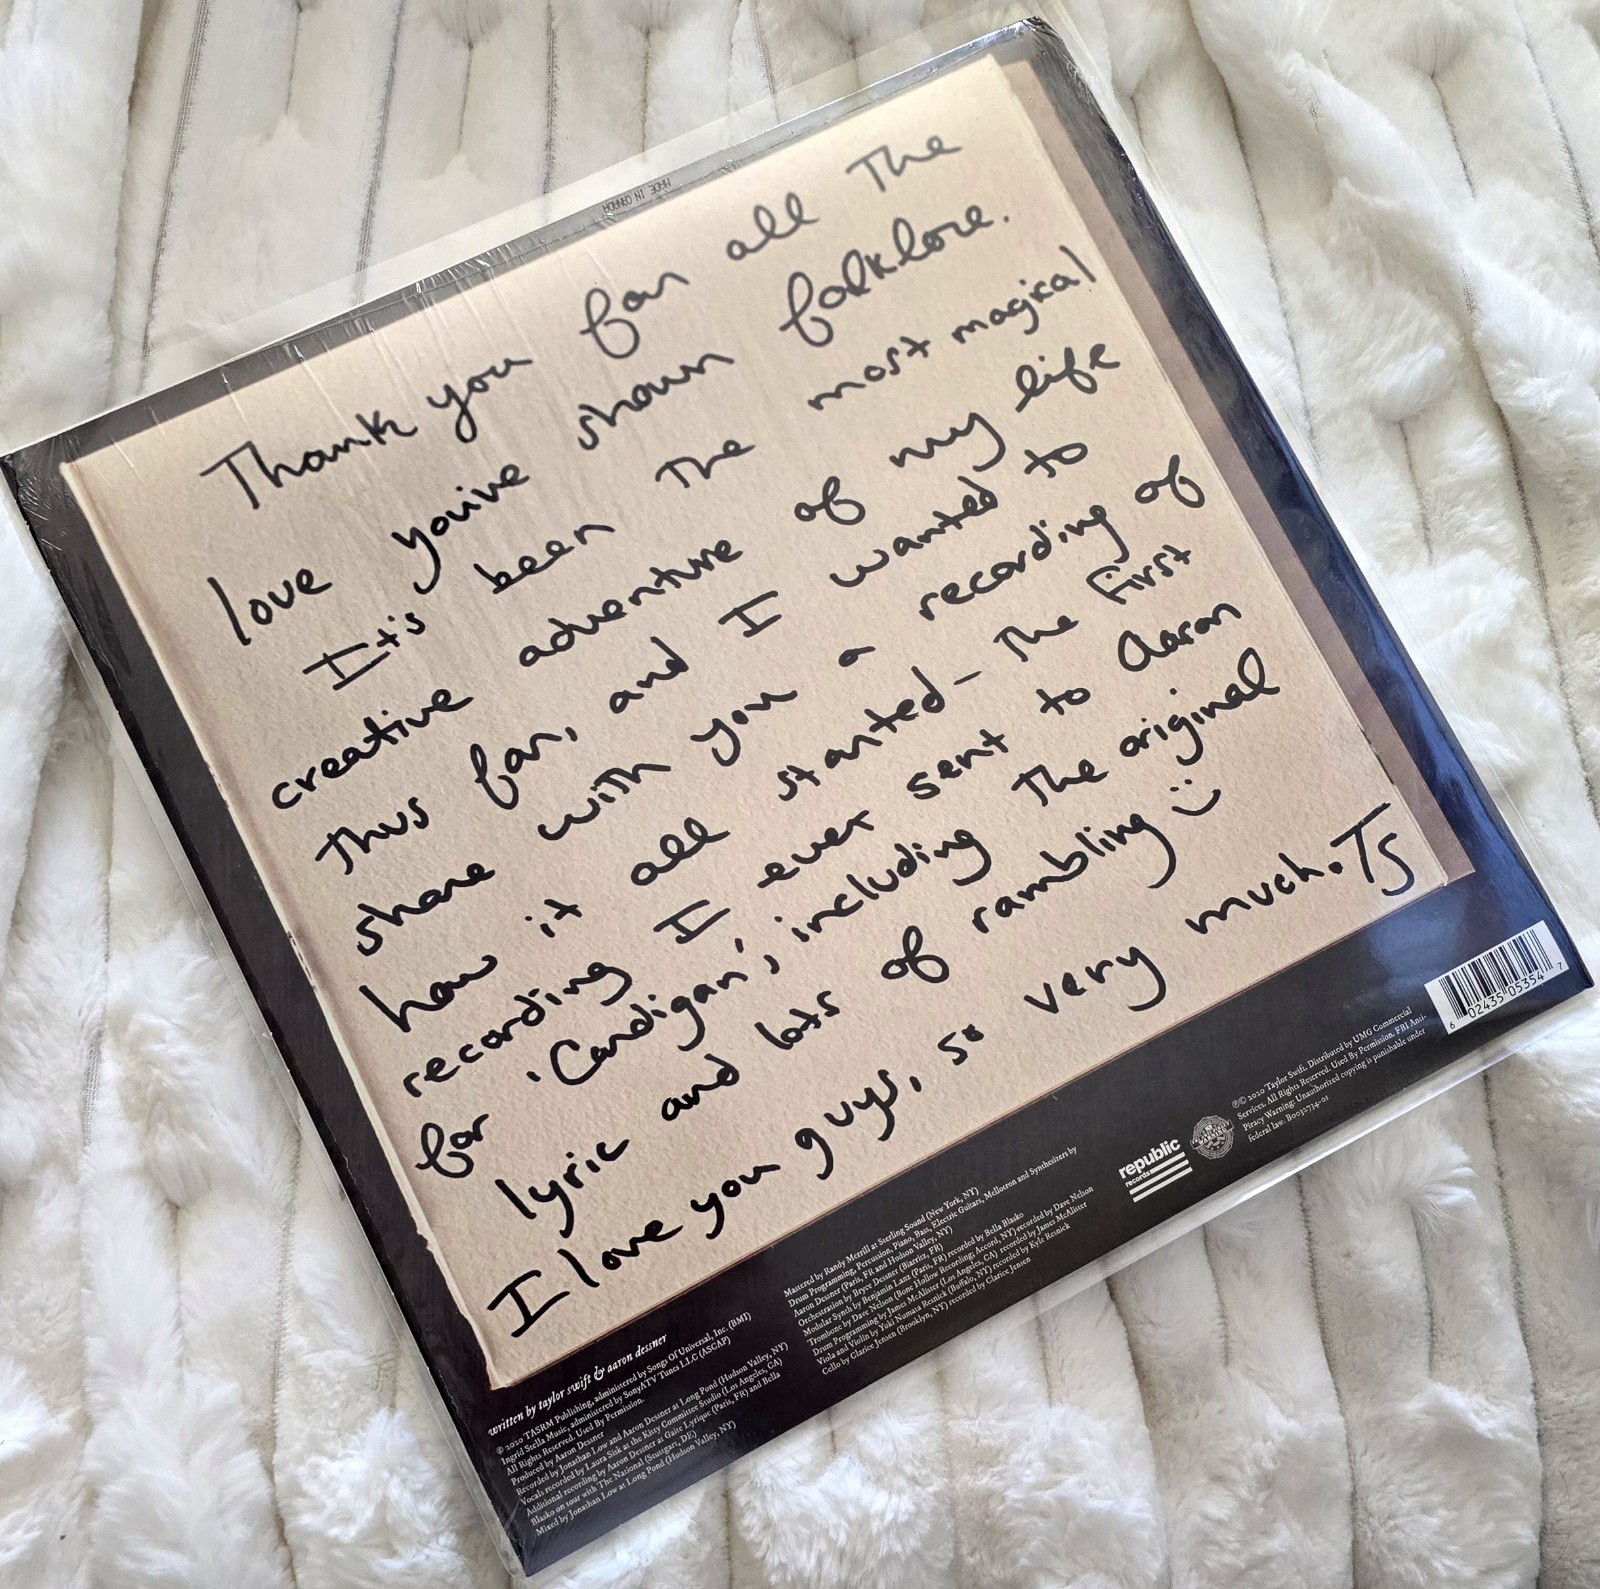 MADE IN CANADA
Thank you for all the
love you've shown folklore.
It's been the most magical
creative adventure of my life
thus far, and I wanted to
share with you a recording of
how it all started - the first
recording I ever sent to Aaron
for 'Cardigan', including the original
lyric and lots of rambling :)
I love you guys, so very much. TS
written by taylor swift & aaron dessner
© 2020 TASRM Publishing, administered by Songs Of Universal, Inc. (BMI)
Ingrid Stella Music, administered by SonyATV Tunes LLC (ASCAP)
All Rights Reserved. Used By Permission.
Produced by Aaron Dessner
Recorded by Jonathan Low and Aaron Dessner at Long Pond (Hudson Valley, NY)
Vocals recorded by Laura Sisk at the Kitty Committee Studio (Los Angeles, CA)
Additional recording by Aaron Dessner at Gaité Lyrique (Paris, FR) and Bella
Blasko on tour with The National (Stuttgart, DE)
Mixed by Jonathan Low at Long Pond (Hudson Valley, NY)
Mastered by Randy Merrill at Sterling Sound (New York, NY)
Drum Programming, Percussion, Piano, Bass, Electric Guitars, Mellotron and Synthesizers by
Aaron Dessner (Paris, FR and Hudson Valley, NY)
Orchestration by Bryce Dessner (Biarritz, FR)
Modular Synth by Benjamin Lanz (Paris, FR) recorded by Bella Blasko
Trombone by Dave Nelson (Bone Hollow Recording; Accord, NY) recorded by Dave Nelson
Drum Programming by James McAlister (Los Angeles, CA) recorded by James McAlister
Viola and Violin by Yuki Numata Resnick (Buffalo, NY) recorded by Kyle Resnick
Cello by Clarice Jensen (Brooklyn, NY) recorded by Clarice Jensen
republic
records
℗© 2020 Taylor Swift. Distributed by UMG Commercial
Services. All Rights Reserved. Used By Permission. FBI Anti-
Piracy Warning: Unauthorized copying is punishable under
federal law. B0032734-01
6 02435 05354 7